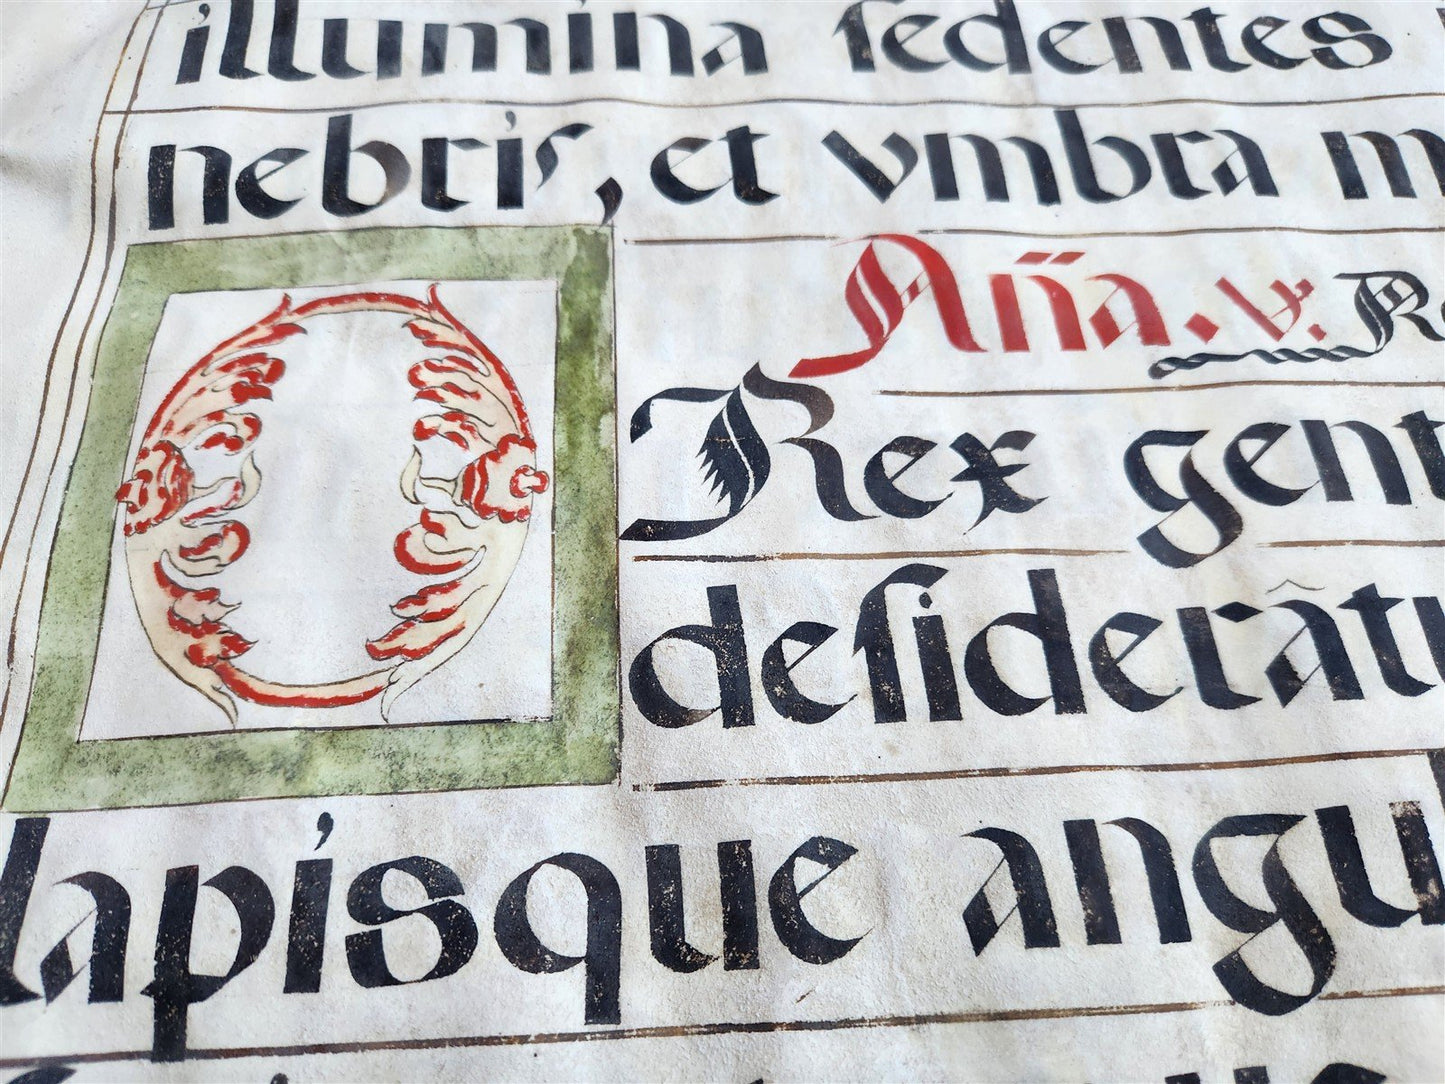 illumina sedentes
nebris, et vmbra m
Aña. v. Re
O Rex gent
desiderâtu
lapisque angul